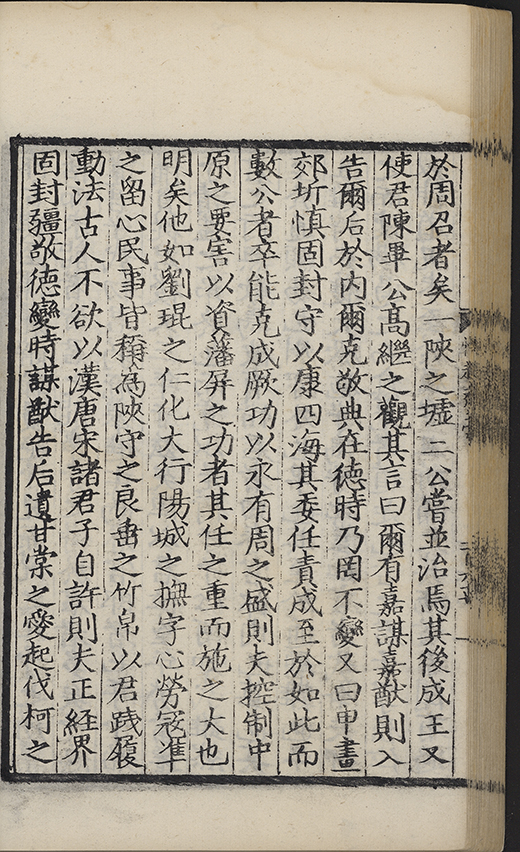 於周召者矣一陝之墟二公嘗並治焉其後成王又
使君陳畢公髙繼之觀其言曰爾有嘉謀嘉猷則入
告爾后於内爾克敬典在徳時乃罔不變又曰申畫
郊圻慎固封守以康四海其委任責成至於如此而
數公者卒能克成厥功以永有周之盛則夫控制中
原之要害以資藩屏之功者其任之重而施之大也
明矣他如劉琨之仁化大行陽城之撫字心勞冦準
之留心民事皆稱為陝守之良垂之竹帛以君踐履
動法古人不欲以漢唐宋諸君子自許則夫正経界
固封疆敬徳變時謀猷告后遺甘棠之愛起伐柯之